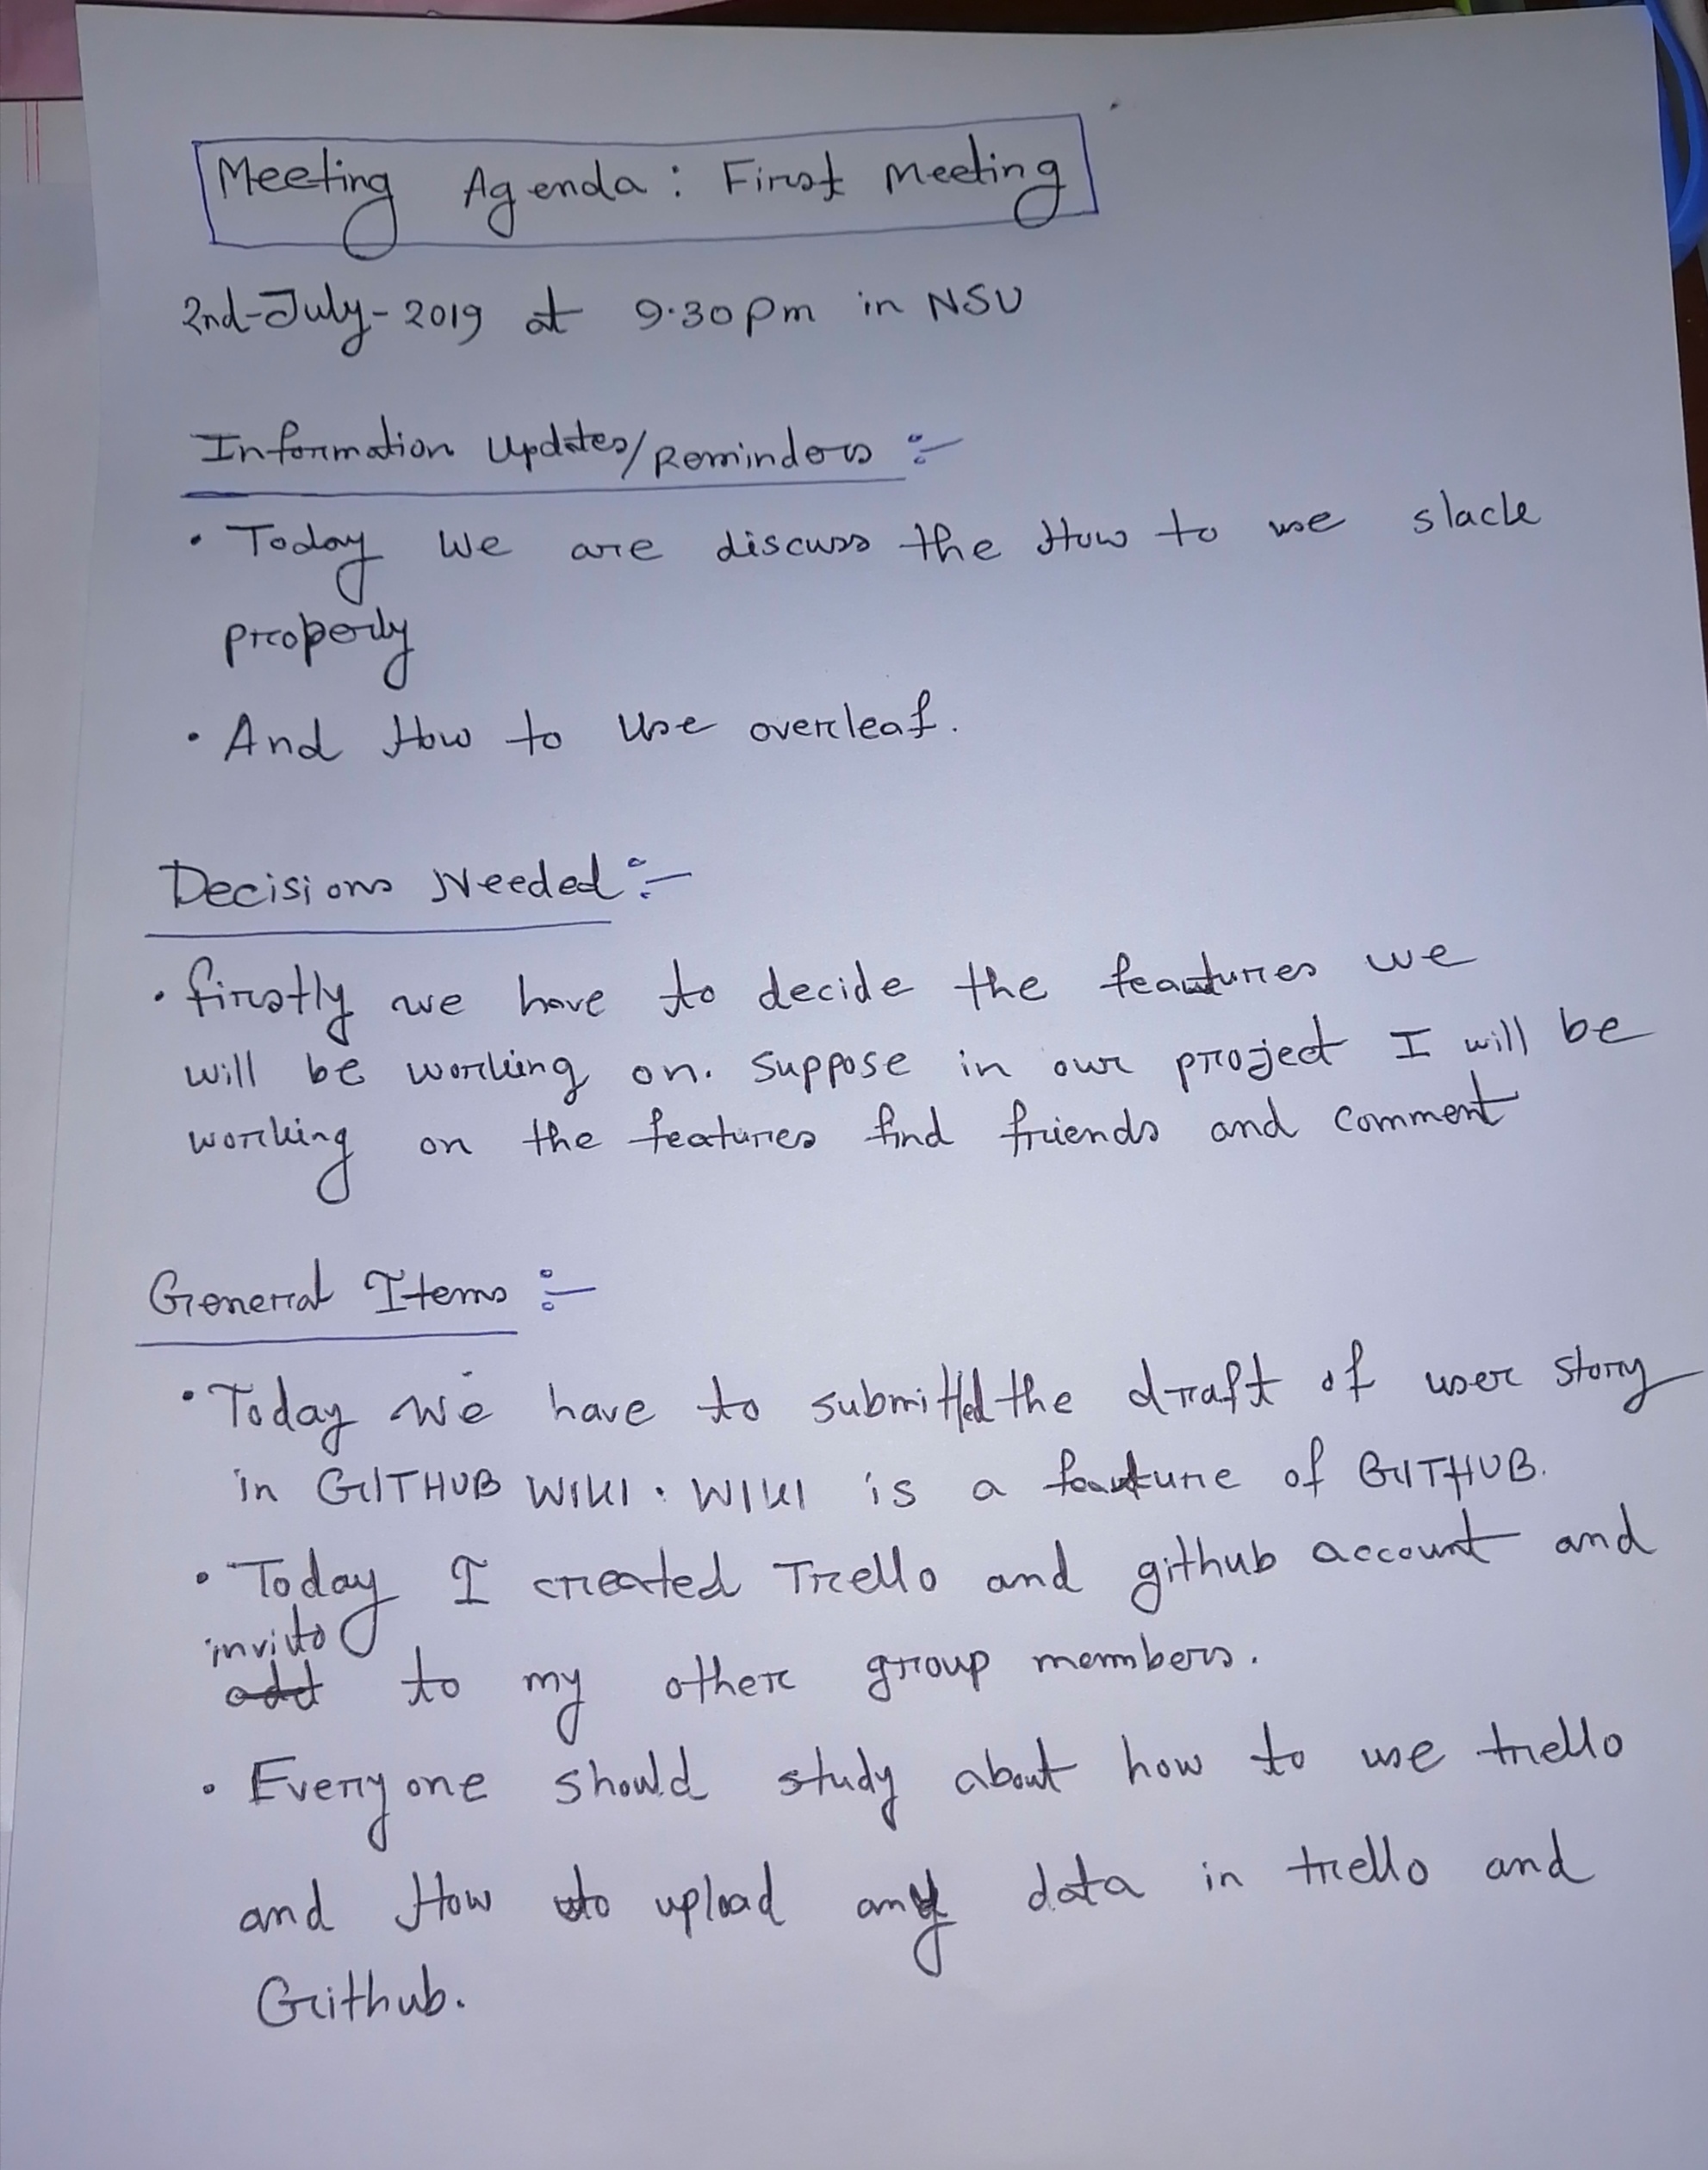 Meeting Agenda: First Meeting
2nd-July-2019 at 9.30pm in NSU
Information Updates/Reminders :-
• Today We are discuss the How to use slack
properly
• And How to Use overleaf.
Decisions Needed :-
• firstly we have to decide the features we
will be working on. suppose in our project I will be
working on the features find friends and comment
General Items :-
• Today We have to submitted the draft of user story
in GITHUB WIKI. WIKI is a feature of GITHUB.
• Today I created Trello and github account and
invite
add to my other group members.
• Everyone should study about how to use trello
and How to upload any data in trello and
Github.